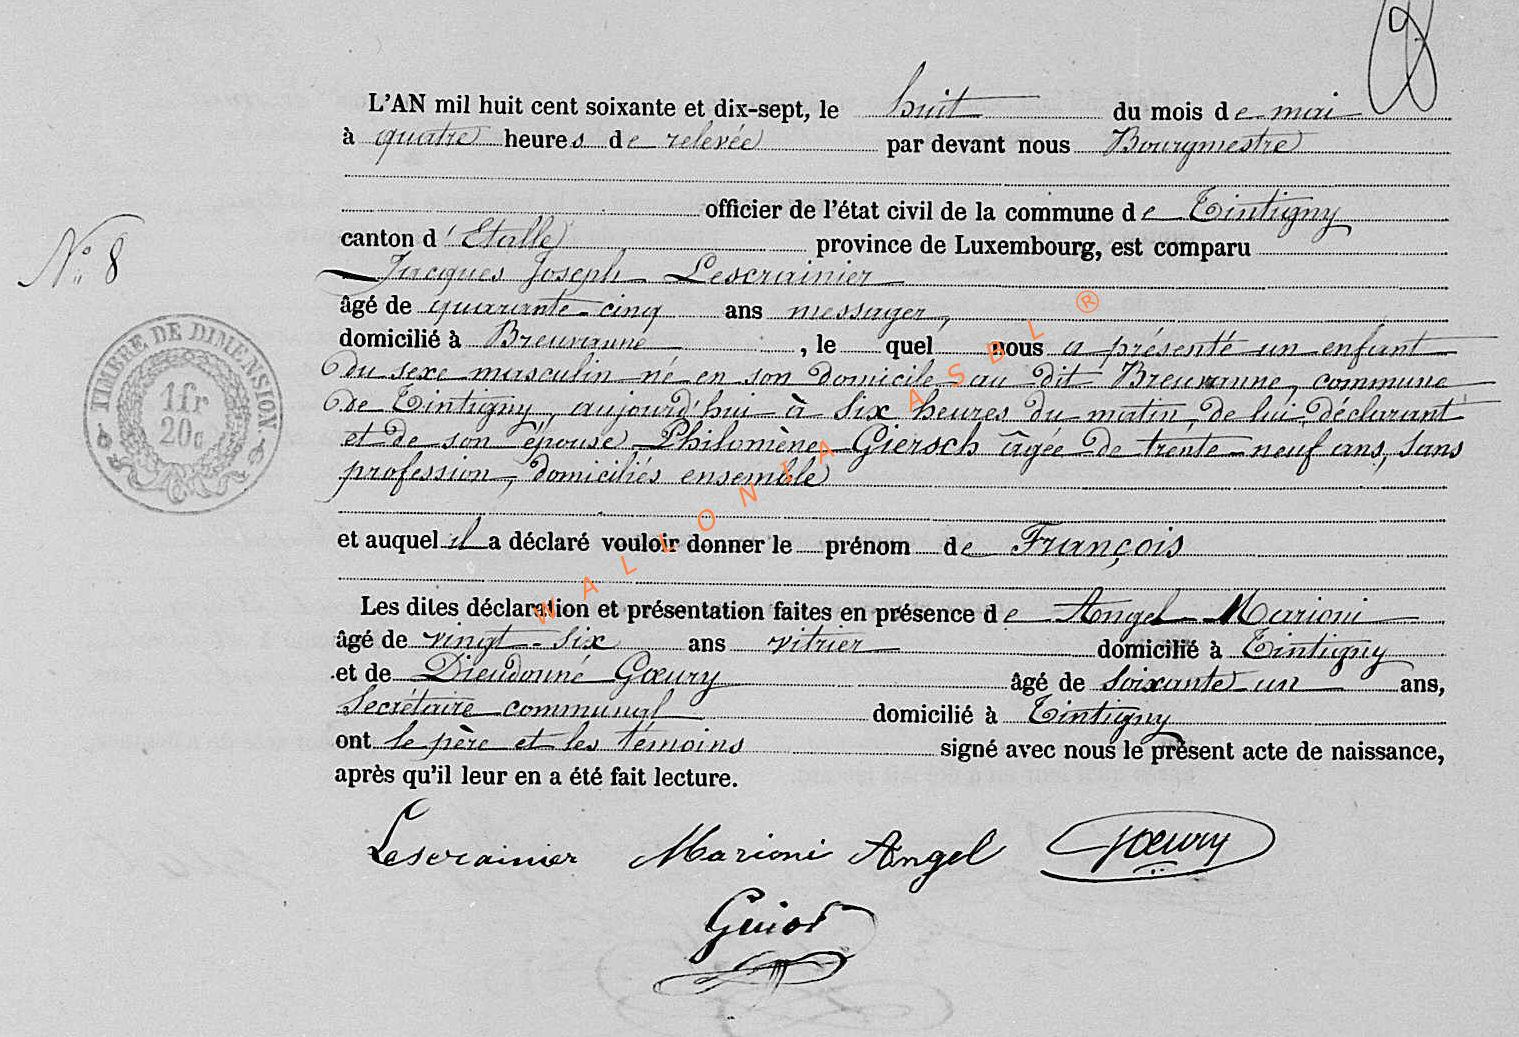 8
L'AN mil huit cent soixante et dix-sept, le huit du mois de mai
à quatre heures de relevée par devant nous Bourgmestre
officier de l'état civil de la commune de Tintigny
canton d'Etalle province de Luxembourg, est comparu
N° 8
Jacques Joseph Lescrainier
âgé de quarante-cinq ans messager,
domicilié à Breuvanne, le quel nous a présenté un enfant
du sexe masculin né en son domicile au dit Breuvanne, commune
de Tintigny, aujourd'hui à six heures du matin, de lui déclarant
et de son épouse Philomène Giersch âgée de trente-neuf ans, sans
profession, domiciliés ensemble
et auquel il a déclaré vouloir donner le prénom de François
Les dites déclaration et présentation faites en présence de Angel Marioni
âgé de vingt-six ans vitrier domicilié à Tintigny
et de Dieudonné Gœury âgé de soixante-un ans,
secrétaire communal domicilié à Tintigny
ont le père et les témoins signé avec nous le présent acte de naissance,
après qu'il leur en a été fait lecture.
Lescrainier Marioni Angel Gœury
Guiot
TIMBRE DE DIMENSION
1fr
20c
WALLONIA ASBL ®